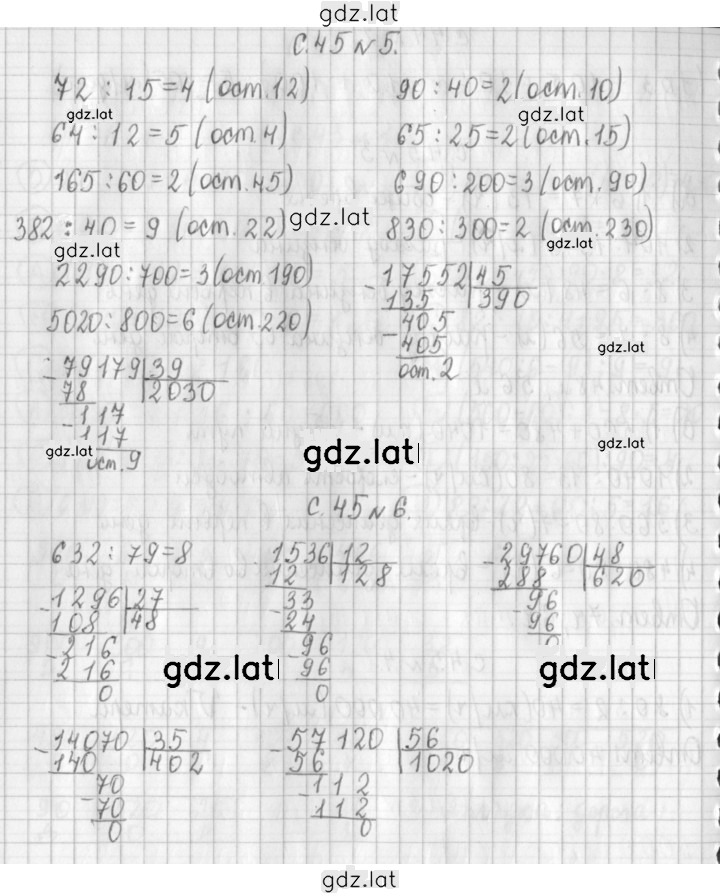 gdz.lat
с.45 №5.
72 : 15=4 (ост.12) 90:40=2(ост.10)
gdz.lat gdz.lat
64:12=5 (ост.4) 65:25=2(ост.15)
165:60=2(ост.45) 690:200=3(ост.90)
382:40=9 (ост.22) gdz.lat 830:300=2 (ост.230)
gdz.lat gdz.lat
2290:700=3(ост.190) -17552|45
135 |390
5020:800=6(ост.220) -405
405
gdz.lat
ост.2
-79179|39
78 |2030
-117
117
gdz.lat gdz.lat gdz.lat
ост.9
с.45 №6.
632:79=8 -1536|12 -29760|48
12 |128 288 |620
-1296|27 -33 -96
108 |48 24 96
-216 -96 0
216 96
0 0
gdz.lat gdz.lat
-14070|35 -57120|56
140 |402 56 |1020
-70 -112
70 112
0 0
gdz.lat